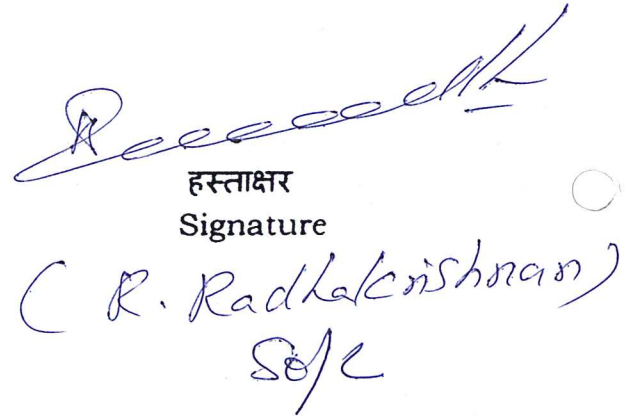 हस्ताक्षर
Signature
( R. Radhakrishnan )
SO/C